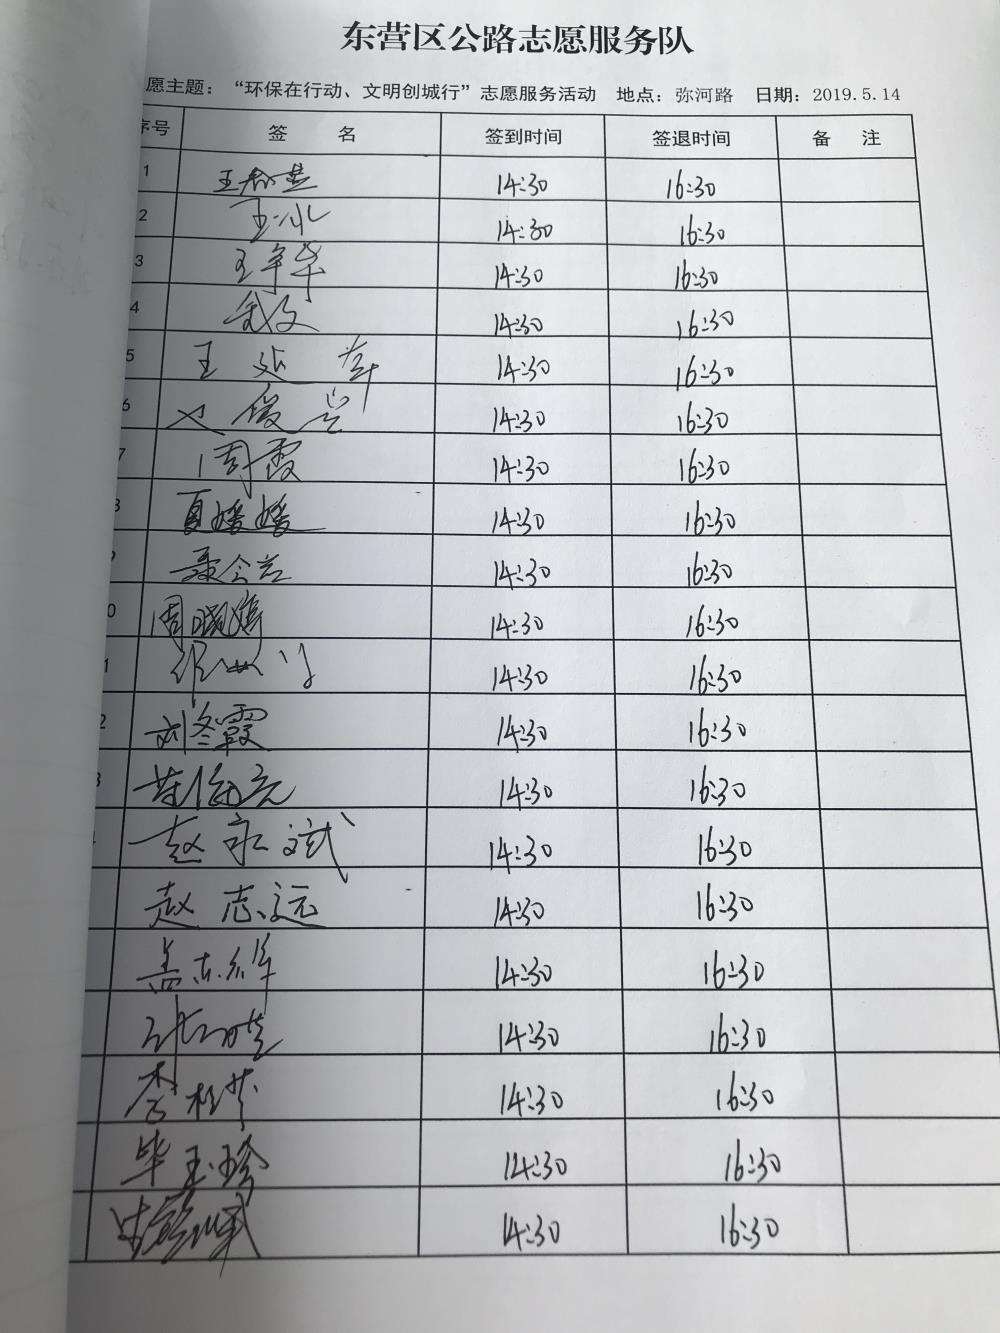 东营区公路志愿服务队
愿主题：“环保在行动、文明创城行”志愿服务活动 地点：弥河路 日期：2019.5.14
序号 签 名 签到时间 签退时间 备 注
1 王 14:30 16:30
2 王冰 14:30 16:30
3 王年华 14:30 16:30
4 14:30 16:30
5 王延 14:30 16:30
6 俊 14:30 16:30
7 周霞 14:30 16:30
8 夏媛媛 14:30 16:30
9 14:30 16:30
0 周晓 14:30 16:30
1 14:30 16:30
2 刘冬霞 14:30 16:30
3 14:30 16:30
赵永斌 14:30 16:30
赵志远 14:30 16:30
孟 14:30 16:30
14:30 16:30
李桂芹 14:30 16:30
毕玉珍 14:30 16:30
14:30 16:30